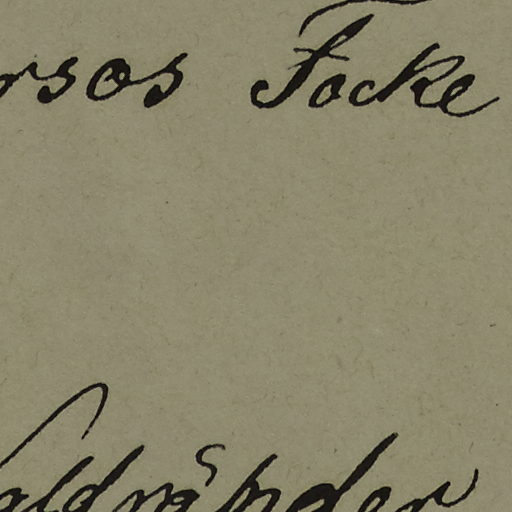 rsos Focke
aldränder